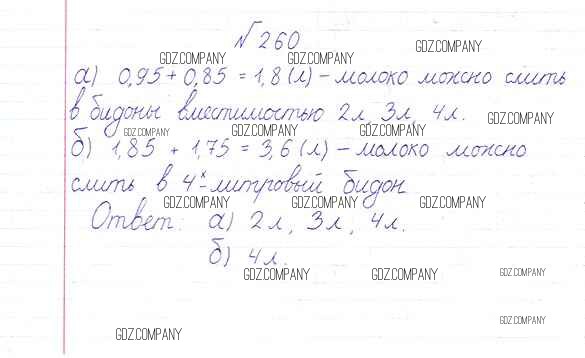 № 260
GDZ.COMPANY
GDZ.COMPANY GDZ.COMPANY
а) 0,95 + 0,85 = 1,8 (л) – молоко можно слить
в бидоны вместимостью 2л, 3л, 4л.
GDZ.COMPANY
GDZ.COMPANY GDZ.COMPANY GDZ.COMPANY
б) 1,85 + 1,75 = 3,6 (л) – молоко можно
слить в 4х-литровый бидон
GDZ.COMPANY GDZ.COMPANY GDZ.COMPANY
Ответ: а) 2л, 3л, 4л.
б) 4л.
GDZ.COMPANY GDZ.COMPANY GDZ.COMPANY
GDZ.COMPANY
GDZ.COMPANY